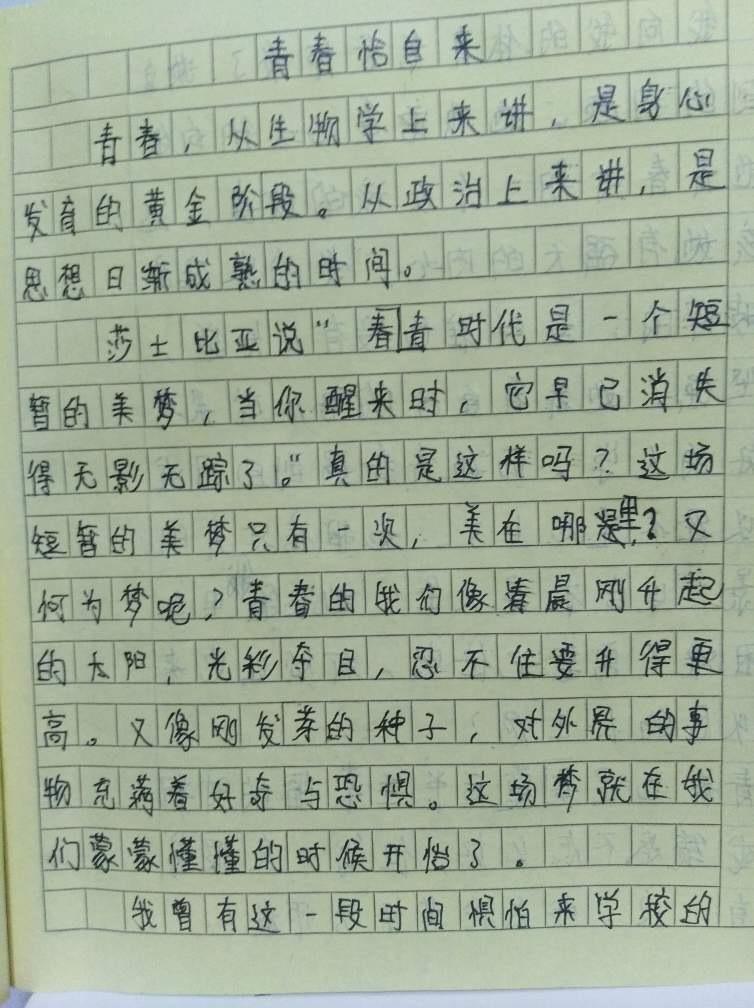 青春恰自来
青春，从生物学上来讲，是身心
发育的黄金阶段。从政治上来讲，是
思想日渐成熟的时间。
莎士比亚说“春青时代是一个短
暂的美梦，当你醒来时，它早已消失
得无影无踪了。”真的是这样吗？这场
短暂的美梦只有一次，美在哪里？又
何为梦呢？青春的我们像清晨刚升起
的太阳，光彩夺目，忍不住要升得更
高。又像刚发芽的种子，对外界的事
物充满着好奇与恐惧。这场梦就在我
们蒙蒙懂懂的时候开始了。
我曾有这一段时间惧怕来学校的